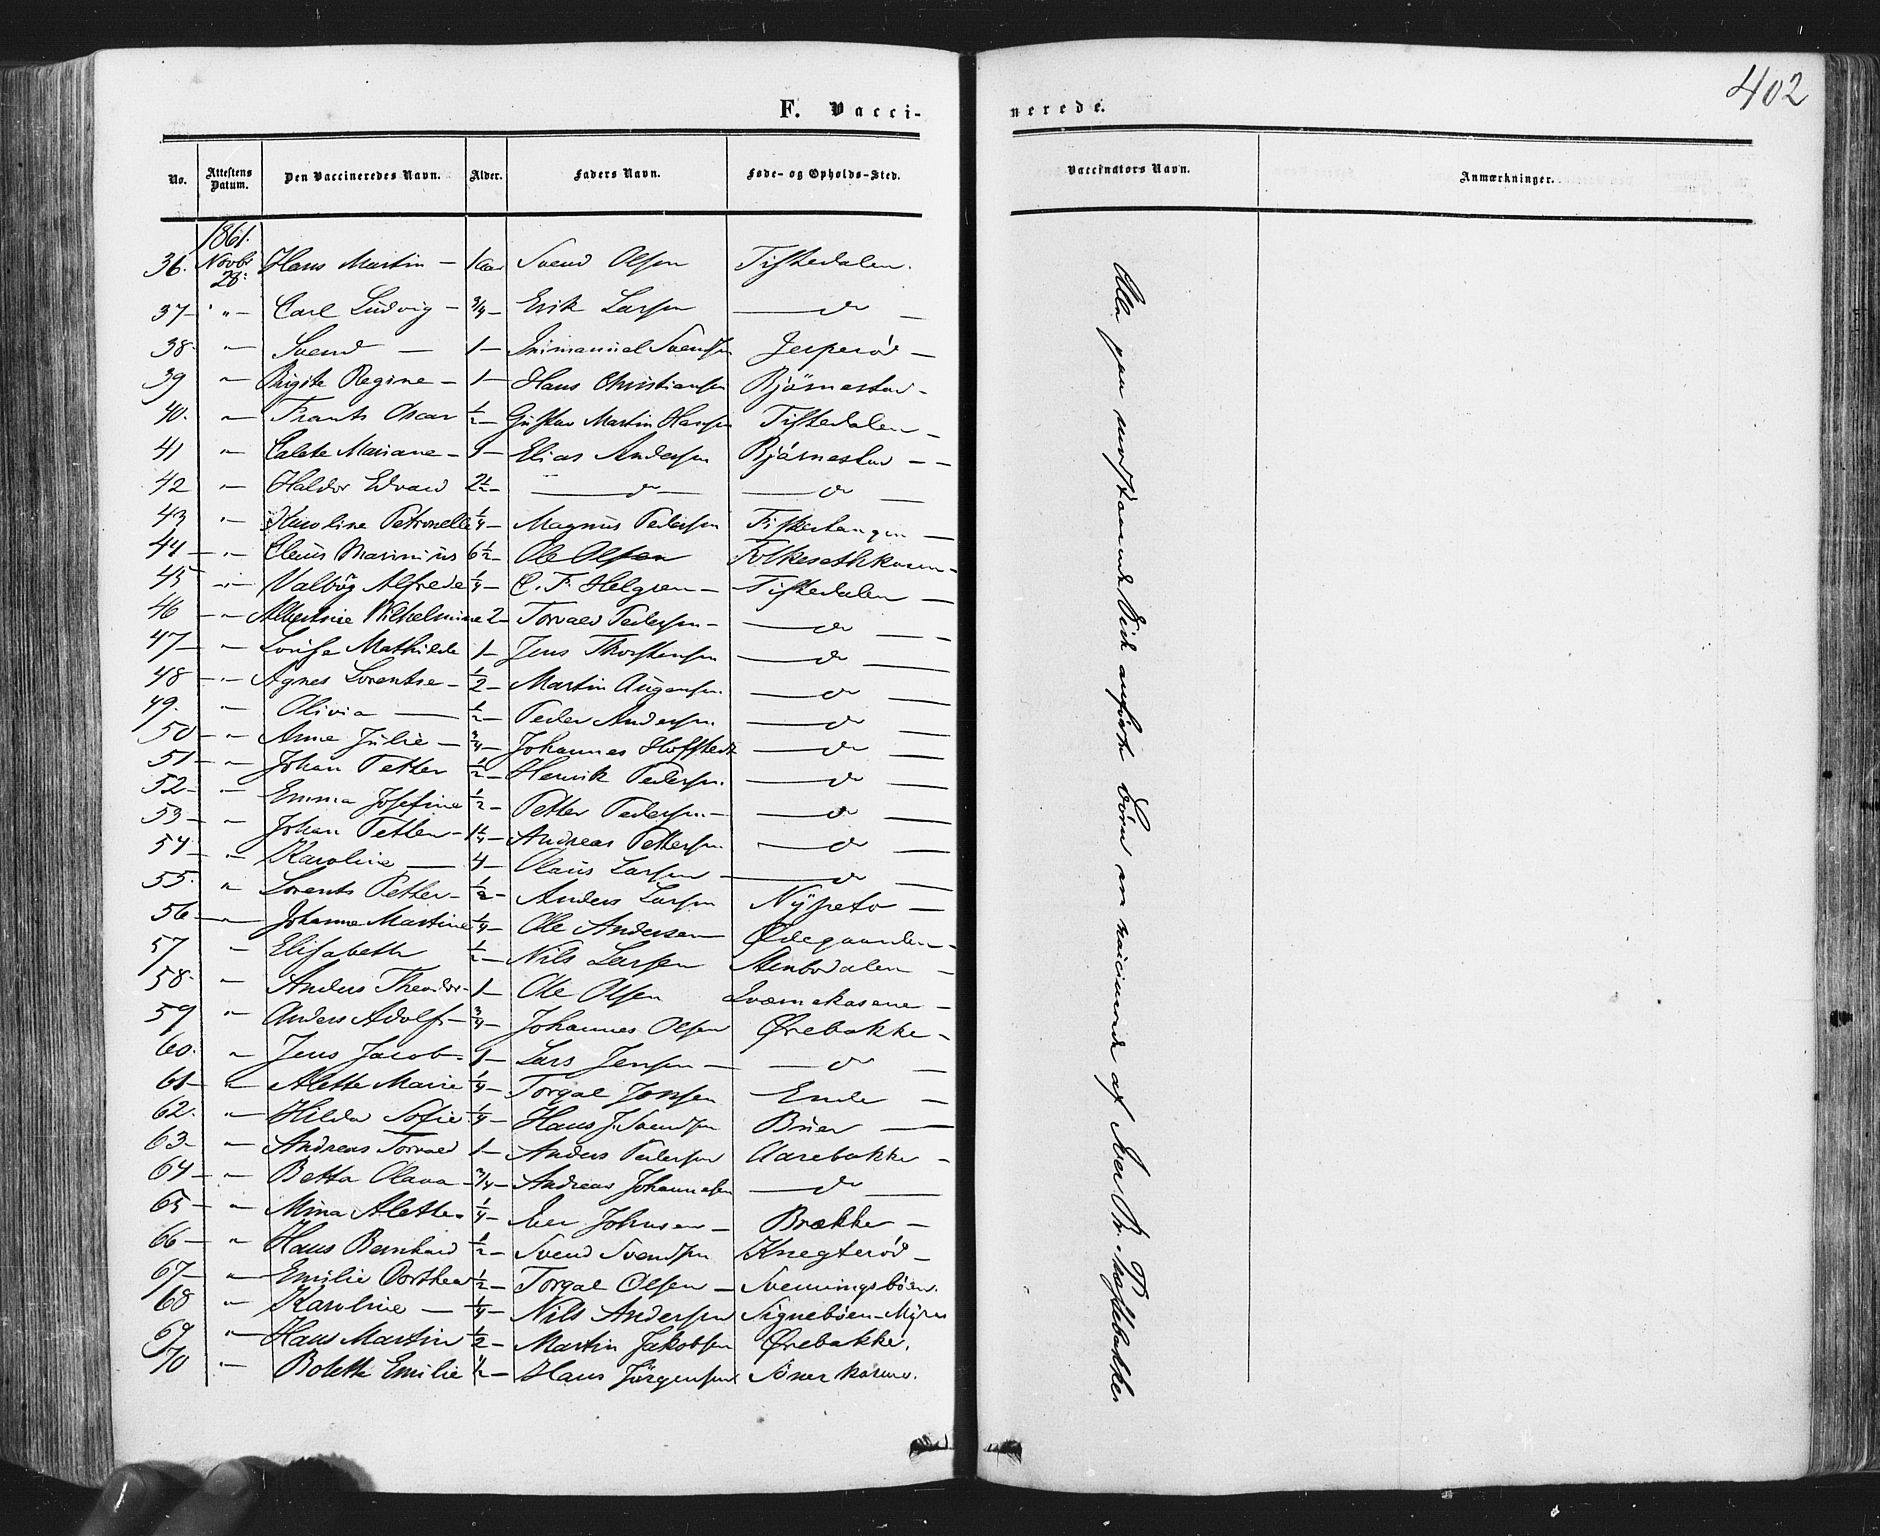 402
F. Vacci-
nerede.
No. Attestens Datum. Den Vaccineredes Navn. Alder. Faders Navn. Føde- og Opholds-Sted. Vaccinators Navn. Anmærkninger.
1861.
36. Novbr 28. Hans Martin – 1 aar Svend Olsen Tistedalen.
37– " – Carl Ludvig – 3/4 – Erik Larsen — do —
38– " – Svend — 1 – Immanuel Svendsen Jesperød –
39 " – Birgitte Regine – 1 – Hans Christiansen Björnestad –
40. " – Frants Oscar 1/2 – Gustav Martin Hansen Tistedalen –
41 " – Mariane – Elias Andersen Björnestad – –
42 " – Haldor Edvard 2 1/2 – — do — — do —
43 " – Karoline Petronelle 1/4 – Magnus Pedersen —
44 – " – Marinius 6 1/2 – Ole Olsen –
45 " – Valbög Alfrede 1/4 – C. F. Helgren – Tistedalen —
46 – " – Albertine Wilhelmine 2 – Torvald Pedersen – — do —
47 – " – Lovise Mathilde 1 – Jens Thorstensen — do —
48 – " – Agnes Lorentse – 1/2 – Martin — do —
49. " – Olivia — 1/2 – Peder Andersen — do —
50 – " – Anne Julie – 3/4 – Johannes Hoffstedt — do —
51 – " – Johan Petter 1/2 – Henrik Pedersen — do —
52 – " – Emma Josefine 1/2 – Petter Pedersen – — do —
53 – " – Johan Petter – 1 1/4 – Andreas Pettersen — do —
54 – " – Karoline — 4 – Olaus Larsen — do —
55. " Lorents Petter – 1/2 – Anders Larsen —
56 – " – Johanne Martine 1/4 – Ole Andersen Ødegaarden –
57 " – Elisabeth 1/2 – Nils Larsen Stenbodalen –
58. " – Anders Theodor – 1 – Ole Olsen –
59 " – Anders Adolf – 3/4 – Johannes Olsen Ørebakke –
60. " – Jens Jacob – 1 – Lars Jensen – — do —
61 – " – Alette Marie 1/4 – Torgal Jonsen –
62. " – Hilda Sofie 1/4 – Hans J. Svendsen —
63 – " – Andreas Torvald 1 – Anders Pedersen Aarebakke –
64 – " – Betta Olava – 3/4 – Andreas Johannesen — do —
65 – " – Mina Alette – 1/4 – Iver Johnsen – Brække –
66 – " Hans Bernhard 1/2 – Svend Svendsen Knegterød –
67 – " – Emilie Dorthea 1/2 – Torgal Olsen – Svenningsbøen.
68 " – Karoline – 1/4 – Nils Andersen Signebøen – Myren
69 " – Hans Martin 1/2 – Martin Jakobsen Ørebakke.
70 " – Bolette Emilie 1/2 – Hans Jörgensen
Alle paa børn ere vaccinerede af Iver